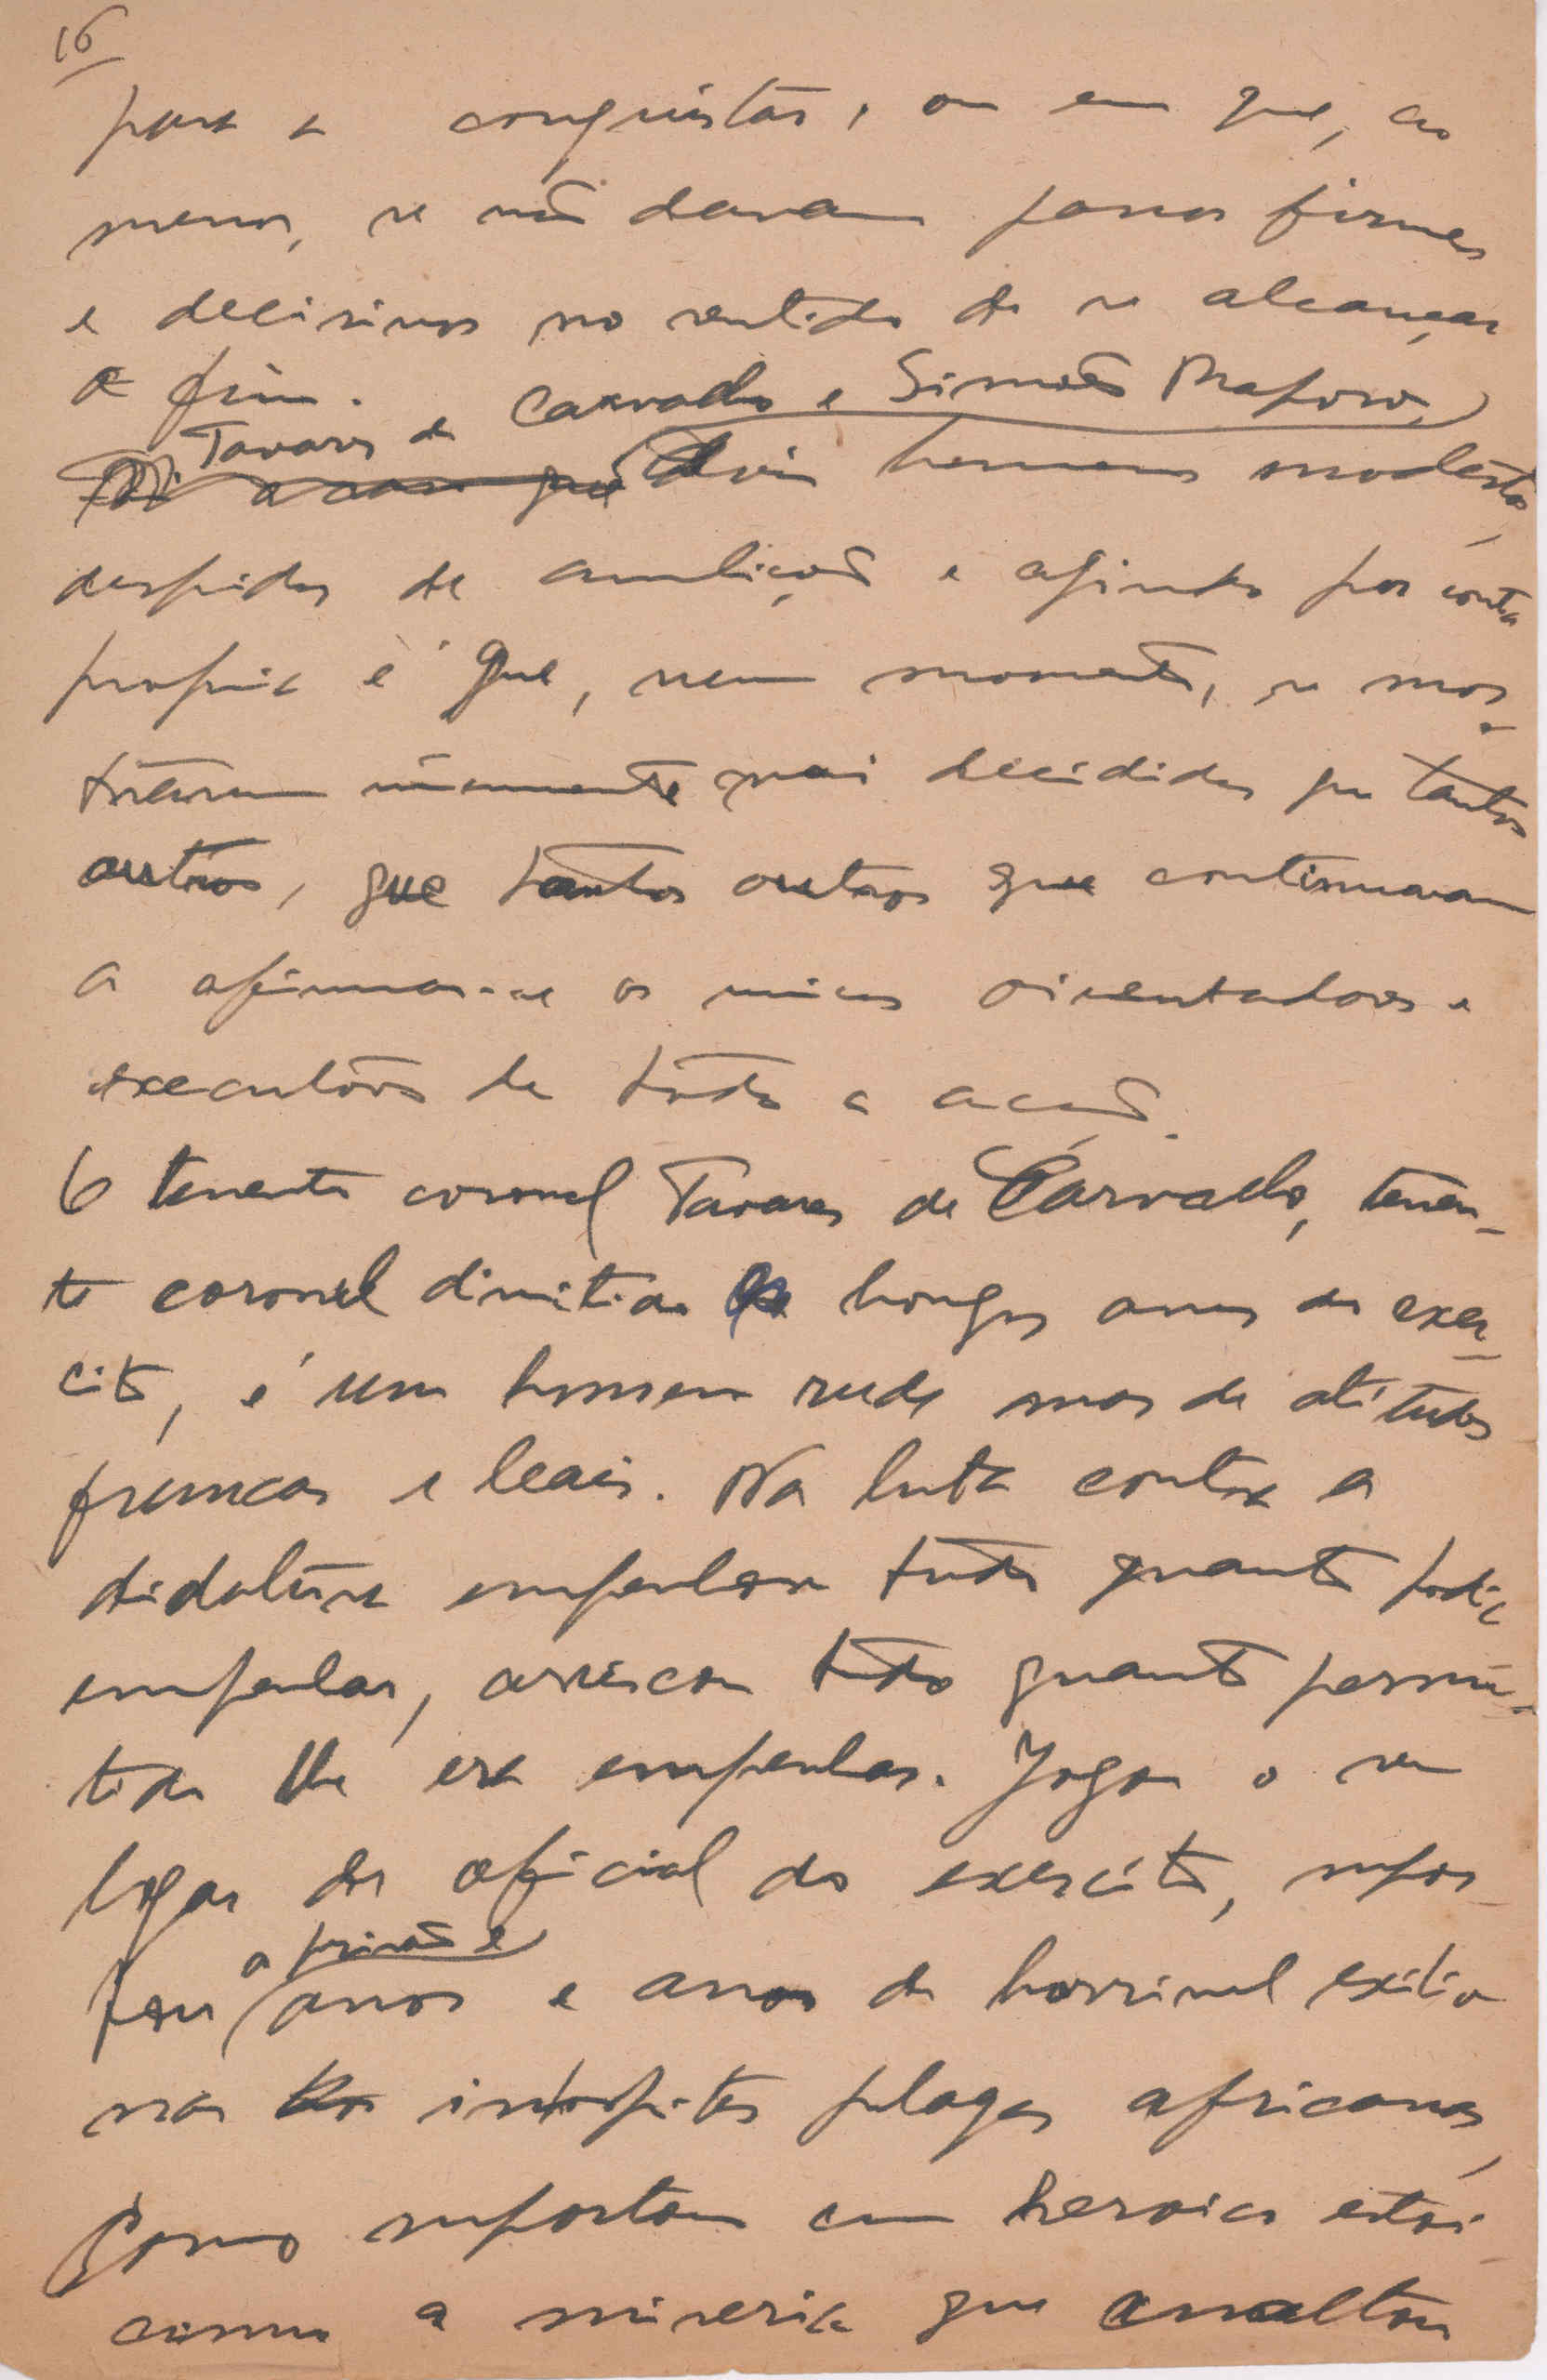 16
para a conquistar, ou em que, ao
menos, se não davam passos firmes
e decisivos no sentido de se alcançar
o fim.
Tavares de Carvalho e Simões Raposo,
Foi a casa que dois homens modestos,
despidos de ambições e agindo por conta
propria é que, nem momento, se mos-
traram mais decididos que tantos
outros, que tantos outros que continuavam
a afirmar-se os unicos orientadores e
executores de toda a acção.
O tenente coronel Tavares de Carvalho, tenen-
te coronel dimitido longos anos do exer-
cito, é um homem rude mas de atitudes
francas e leais. Na luta contra a
didatura empenhou tudo quanto podia
empenhar, arriscou tudo quanto permi-
tido lhe era empenhar. Jogou o seu
logar de oficial do exercito, supor-
tou a prisão e anos e anos de horrivel exilio
nas inhospitas plagas africanas,
como suportou com heroico estoi-
cismo a miseria que assaltou